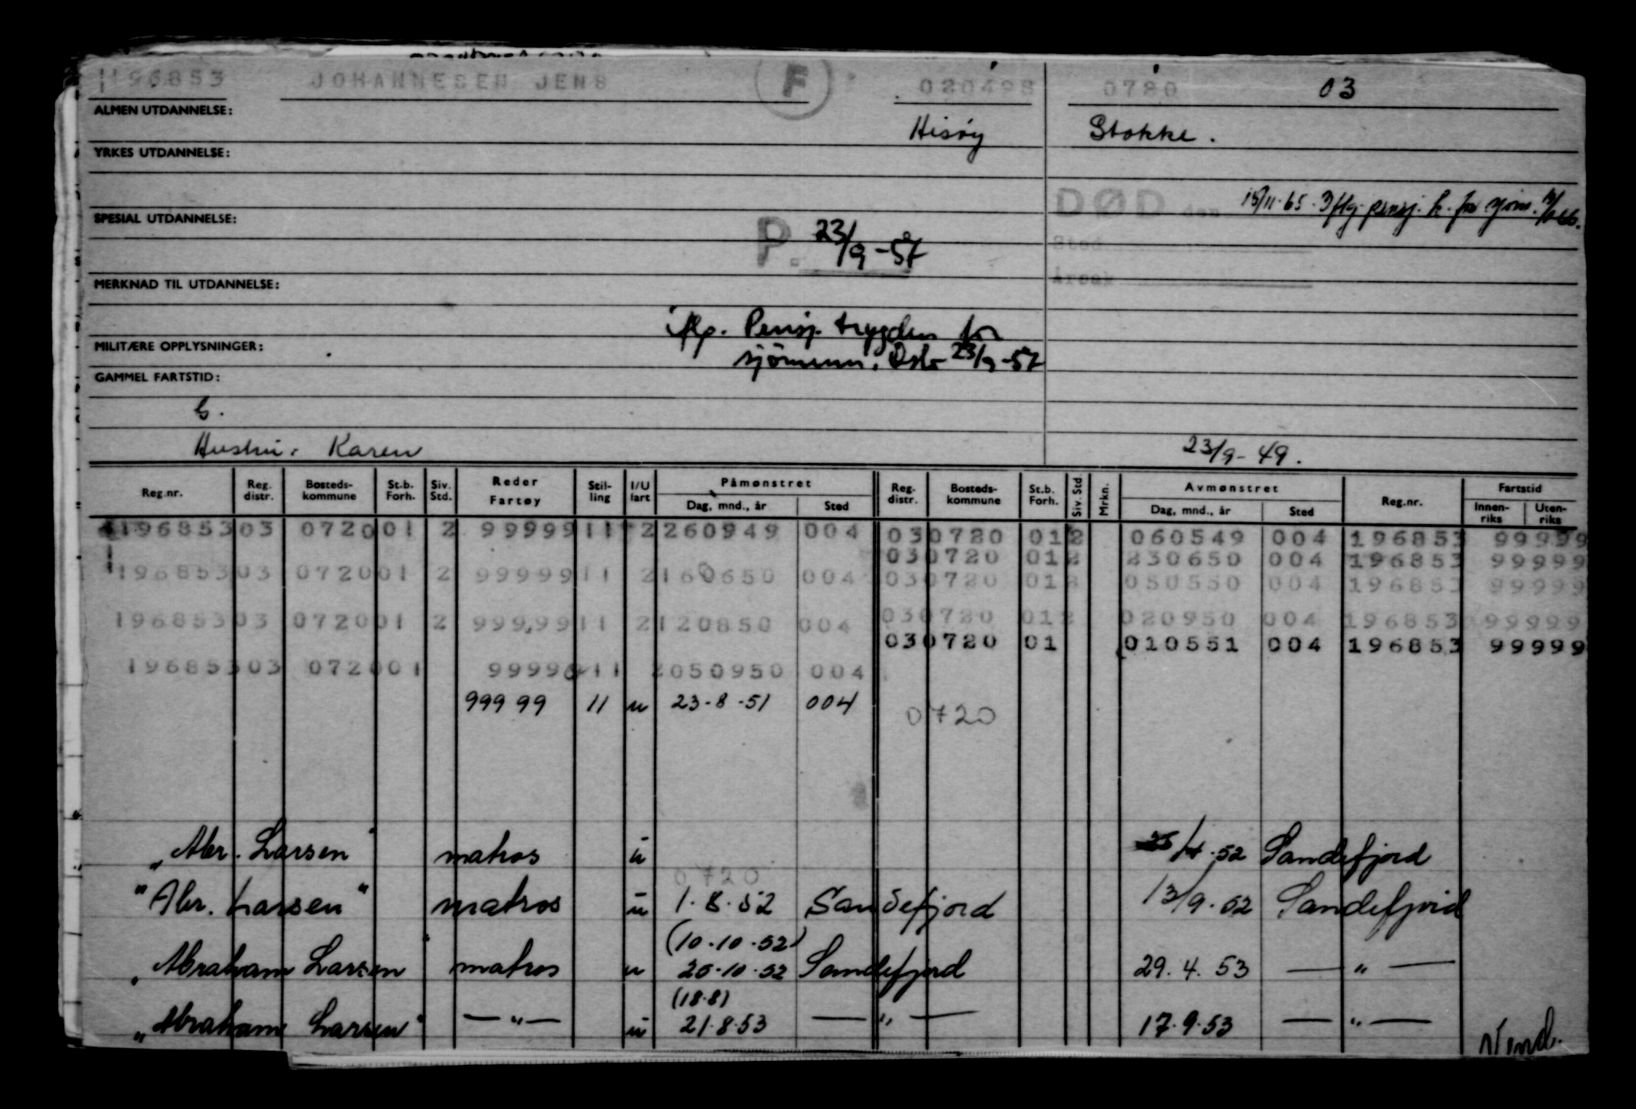 196853 JOHANNESEN JENS F 020498 0720 03
ALMEN UTDANNELSE:
Hisøy Stokke.
YRKES UTDANNELSE:
DØD den 18/11-65. Iflg. pensj. k. for sjøm.
SPESIAL UTDANNELSE:
P. 23/9-57
Sted
Årsak
MERKNAD TIL UTDANNELSE:
iflg. Pensj. trygden for
MILITÆRE OPPLYSNINGER:
sjømenn, Oslo 23/9-57
GAMMEL FARTSTID:
G.
Hustru: Karen 23/9-49.
Reg.nr. Reg. distr. Bosteds-kommune St.b. Forh. Siv. Std. Reder Fartøy Stil-ling I/U fart Påmønstret Dag, mnd., år Sted Reg. distr. Bosteds-kommune St.b. Forh. Siv. Std Mrkn. Avmønstret Dag, mnd., år Sted Reg.nr. Fartstid Innen-riks Uten-riks
196853 03 0720 01 2 99999 11 2 260949 004 03 0720 01 2 060549 004 196853 99999
03 0720 01 2 230650 004 196853 99999
196853 03 0720 01 2 99999 11 2 160650 004 03 0720 01 2 050550 004 196853 99999
196853 03 0720 01 2 99999 11 2 120850 004 03 0720 01 2 020950 004 196853 99999
03 0720 01 010551 004 196853 99999
196853 03 0720 01 99999 11 2 050950 004
99999 11 u 23-8-51 004 0720
"Abr. Larsen" matros u 25/4.52 Sandefjord
0720
"Abr. Larsen" matros u 1.8.52 Sandefjord 13/9.52 Sandefjord
(10.10.52)
"Abraham Larsen matros u 20.10.52 Sandefjord 29.4.53 — " —
(18.8)
"Abraham Larsen" — " — u 21.8.53 — " — 17.9.53 — " —
Vend.